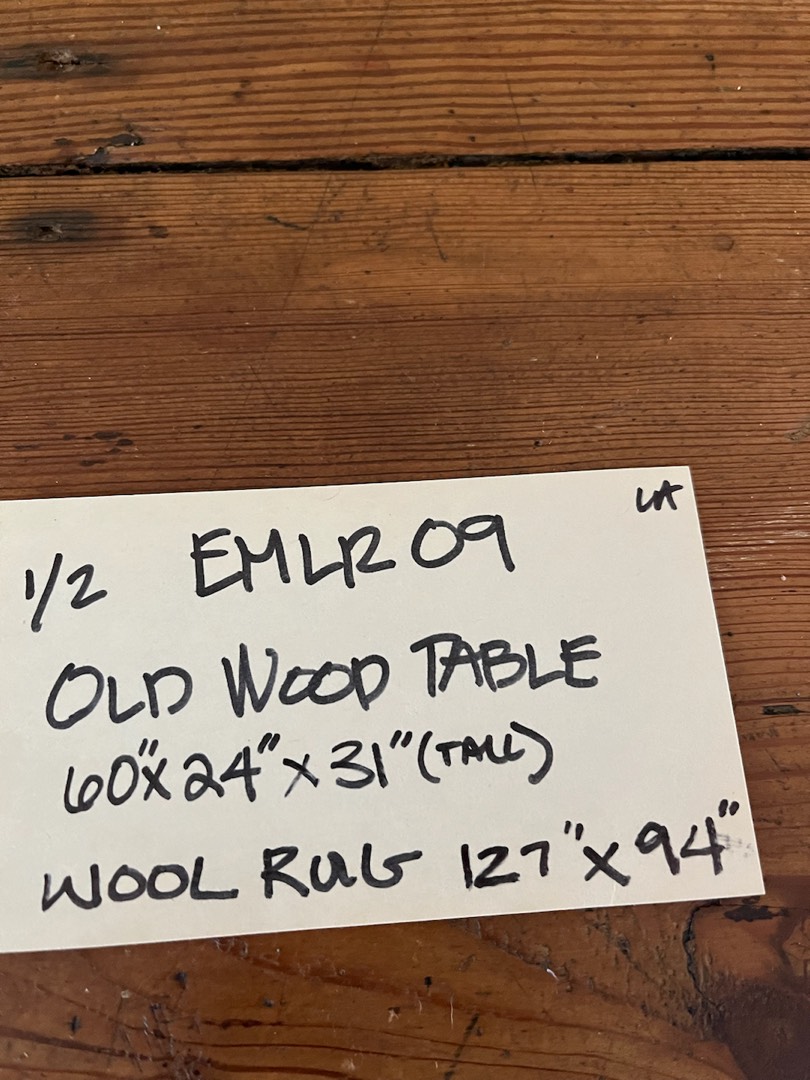 LA
1/2 EMLR 09
OLD WOOD TABLE
60" x 24" x 31" (TALL)
WOOL RUG 127" x 94"